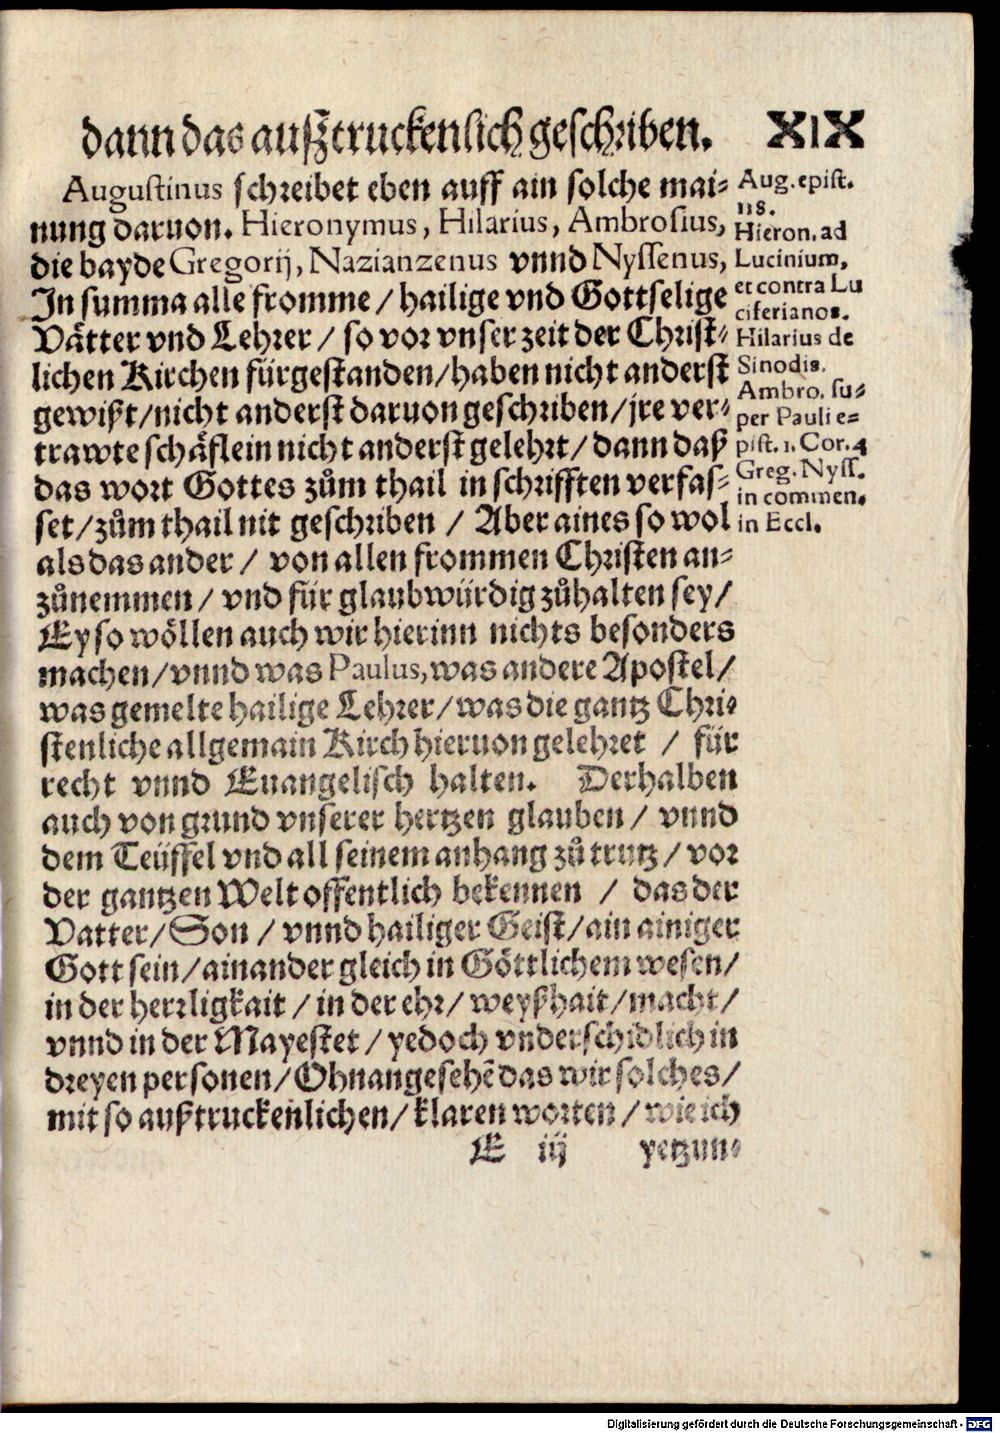 dann das außtruckenlich geschriben. XIX
Augustinus schreibet eben auff ain solche mai-
nung daruon. Hieronymus, Hilarius, Ambrosius,
die bayde Gregorij, Nazianzenus vnnd Nyssenus,
In summa alle fromme / hailige vnd Gottselige
Vätter vnd Lehrer / so vor vnser zeit der Christ-
lichen Kirchen fürgestanden / haben nicht anderst
gewißt / nicht anderst daruon geschriben / jre ver-
trawte schäflein nicht anderst gelehrt / dann daß
das wort Gottes zům thail in schrifften verfas-
set / zům thail nit geschriben / Aber aines so wol
als das ander / von allen frommen Christen an-
zůnemmen / vnd für glaubwürdig zůhalten sey /
Ey so wöllen auch wir hierinn nichts besonders
machen / vnnd was Paulus, was andere Apostel /
was gemelte hailige Lehrer / was die gantz Chri-
stenliche allgemain Kirch hieruon gelehret / für
recht vnnd Euangelisch halten. Derhalben
auch von grund vnserer hertzen glauben / vnnd
dem Teüffel vnd all seinem anhang zů trutz / vor
der gantzen Welt offentlich bekennen / das der
Vatter / Son / vnnd hailiger Geist / ain ainiger
Gott sein / ainander gleich in Göttlichem wesen /
in der herrligkait / in der ehr / weyßhait / macht /
vnnd in der Mayestet / yedoch vnderschidlich in
dreyen personen / Ohnangesehē das wir solches /
mit so außtruckenlichen / klaren worten / wie ich
E iij yetzun-
Aug. epist.
118.
Hieron. ad
Lucinium,
et contra Lu
ciferianos.
Hilarius de
Sinodis.
Ambro. su-
per Pauli e-
pist. 1. Cor. 4
Greg. Nyss.
in commen.
in Eccl.
Digitalisierung gefördert durch die Deutsche Forschungsgemeinschaft - DFG